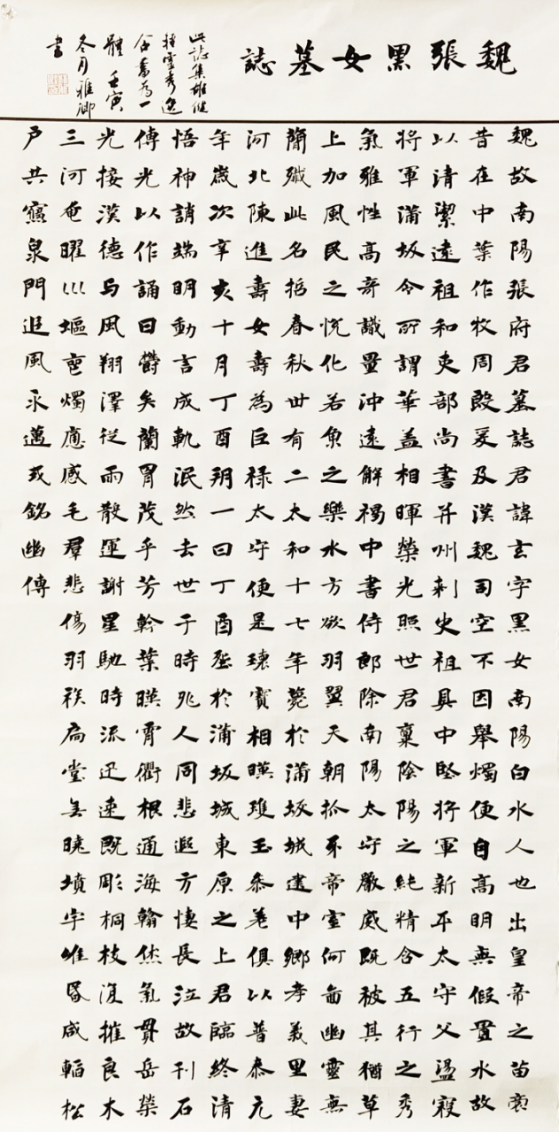 魏張黑女墓誌
魏故南陽張府君墓誌君諱玄字黑女南陽白水人也出皇帝之苗裔
昔在中葉作牧周殷爰及漢魏司空不因舉燭便自高明無假置水故
以清潔遠祖和吏部尚書并州刺史祖具中堅將軍新平太守父盪寇
將軍蒲坂令所謂華蓋相暉榮光照世君稟陰陽之純精含五行之秀
氣雅性高奇識量沖遠解褐中書侍郎除南陽太守嚴威既被其猶草
上加風民之悅化若魚之樂水方欲羽翼天朝抓牙帝室何啚幽靈無
簡殲此名哲春秋卅有二太和十七年薨於蒲坂城建中鄉孝義里妻
河北陳進壽女壽為巨祿太守便是瓌寶相暎瓊玉參差俱以普泰元
年歲次辛亥十月丁酉朔一日丁酉塟於蒲坂城東原之上君臨終清
悟神誚端明動言成軌泯然去世于時兆人同悲遐方悽長泣故刊石
傳光以作誦曰鬱矣蘭胄茂乎芳幹葉暎霄衢根通海翰倐氣貫岳榮
光接漢德与風翔澤從雨散運謝星馳時流迅速既彫桐枝復摧良木
三河奄曜巛塸重燭應感毛羣悲傷羽族扃堂無曉墳宇唯昏咸輼松
戸共寢泉門追風永邁式銘幽傳
此誌集雄健
秀逸
含蓄為一
體 壬寅
冬月雅卿
書